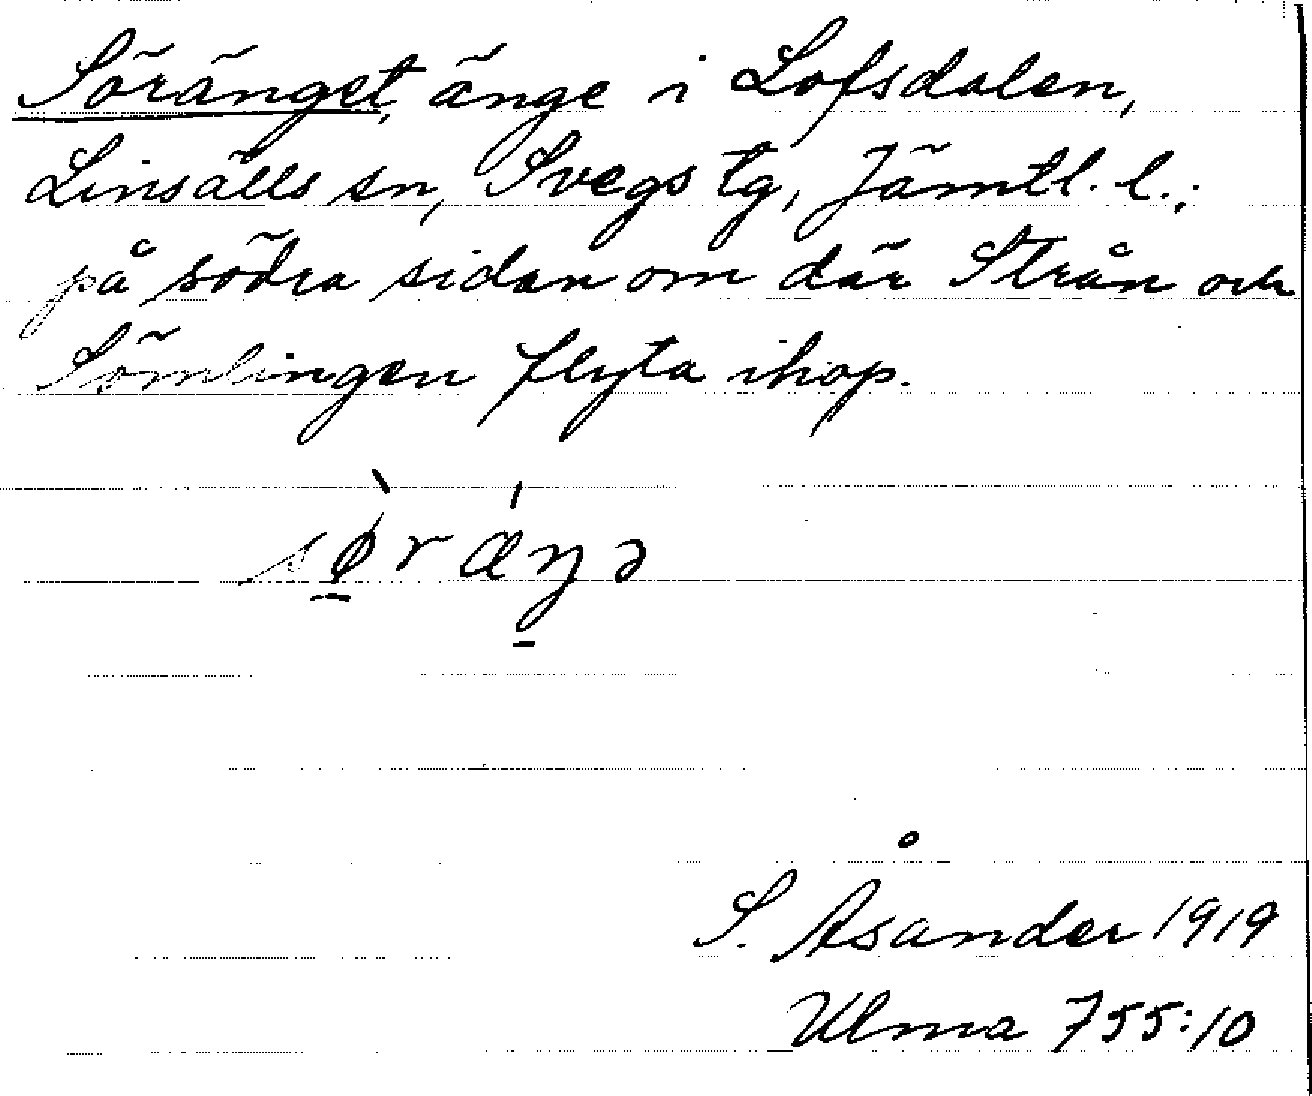 Söränget, änge i Lofsdalen,
Linsälls sn, Svegs tg, Jämtl. l.;
på södra sidan om där Strån och
Sömlingen flyta ihop.
sø̠̀rǽ̠ŋə
S. Åsander 1919
Ulma 755:10